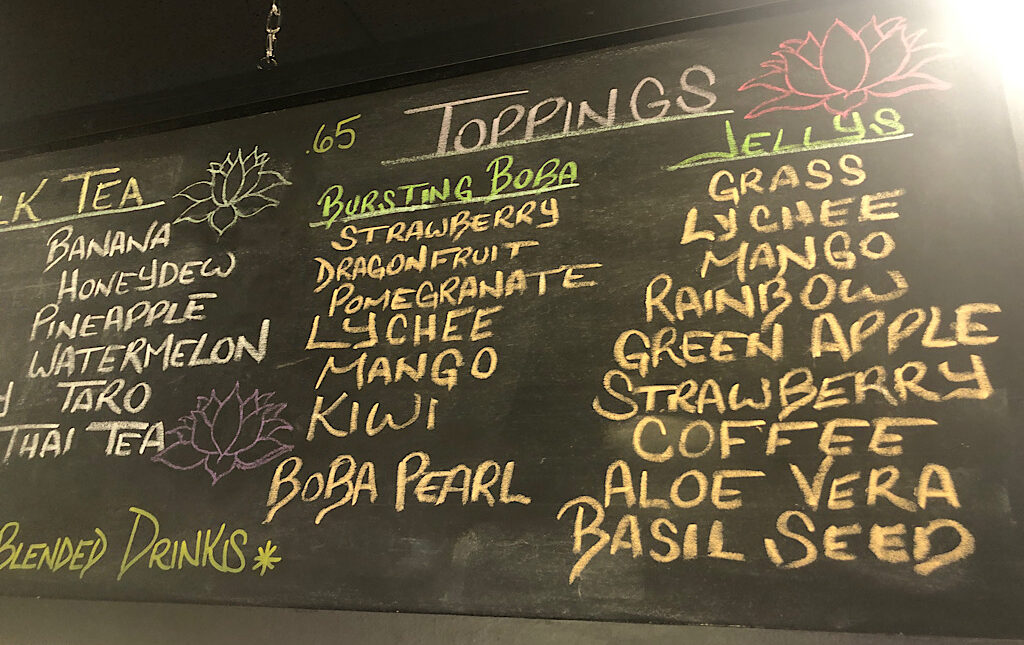 LK TEA
BANANA
HONEYDEW
PINEAPPLE
WATERMELON
TARO
THAI TEA
BLENDED DRINKS*
.65 TOPPINGS
BURSTING BOBA
STRAWBERRY
DRAGONFRUIT
POMEGRANATE
LYCHEE
MANGO
KIWI
BOBA PEARL
JELLYS
GRASS
LYCHEE
MANGO
RAINBOW
GREEN APPLE
STRAWBERRY
COFFEE
ALOE VERA
BASIL SEED